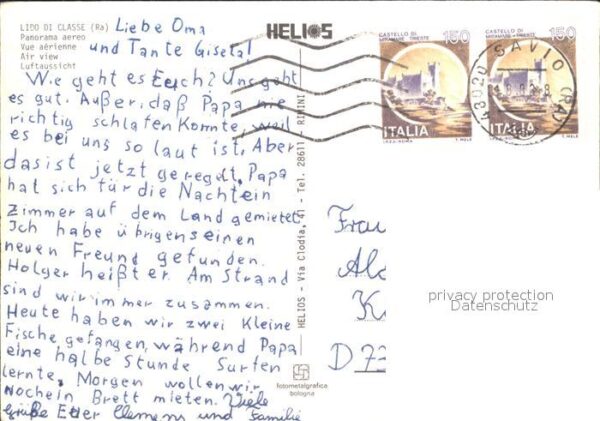 LIDO DI CLASSE (Ra)
Panorama aereo
Vue aérienne
Air view
Luftaussicht
Liebe Oma
und Tante Gisela!
Wie geht es Euch? Uns geht
es gut. Außer, daß Papa nie
richtig schlafen konnte, weil
es bei uns so laut ist. Aber
das ist jetzt geregelt, Papa
hat sich für die Nacht ein
Zimmer auf dem Land gemietet.
Ich habe übrigens einen
neuen Freund gefunden.
Holger heißt er. Am Strand
sind wir immer zusammen.
Heute haben wir zwei Kleine
Fische gefangen, während Papa
eine halbe Stunde Surfen
lernte. Morgen wollen wir
noch ein Brett mieten. Viele
grüße Euer Clemens und Familie
HELIOS
HELIOS - Via Clodia, 41 - Tel. 28611 - RIMINI
fotometalgrafica
bologna
CASTELLO DI
MIRAMARE TRIESTE
150
ITALIA
I.P.Z.S.-ROMA
T. MELE
CASTELLO DI
MIRAMARE TRIESTE
150
ITALIA
I.P.Z.S.-ROMA
T. MELE
48020 SAVIO (RA)
Frau
D 73
privacy protection
Datenschutz